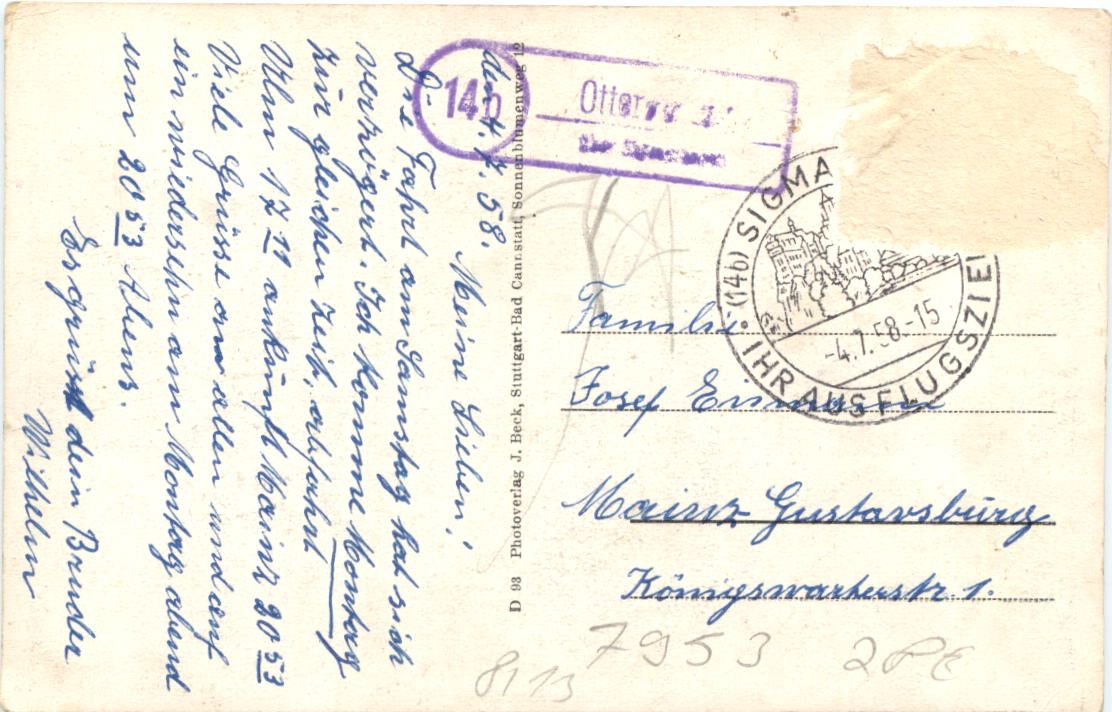 den 4.7.58.
Meine Lieben!
Die Fahrt am Samstag hat sich
verzögert. Ich komme Montag
zur gleichen Zeit, abfahrt
Ulm 17 11 ankunft Mainz 20 53
Viele Grüsse an allen und auf
ein wiedersehn am Montag abend
um 20 53 Abens.
Es grüßt dein Bruder
Wilhelm
D 93 Photoverlag J. Beck, Stuttgart-Bad Cannstatt, Sonnenblumenweg 12
14b
(14b) SIGMA
-4.7.58.-15
IHR AUSFLUGSZIEL
Familie
Josef
Mainz Gustavsburg
Königswarterstr 1.
7953
2PE
8113